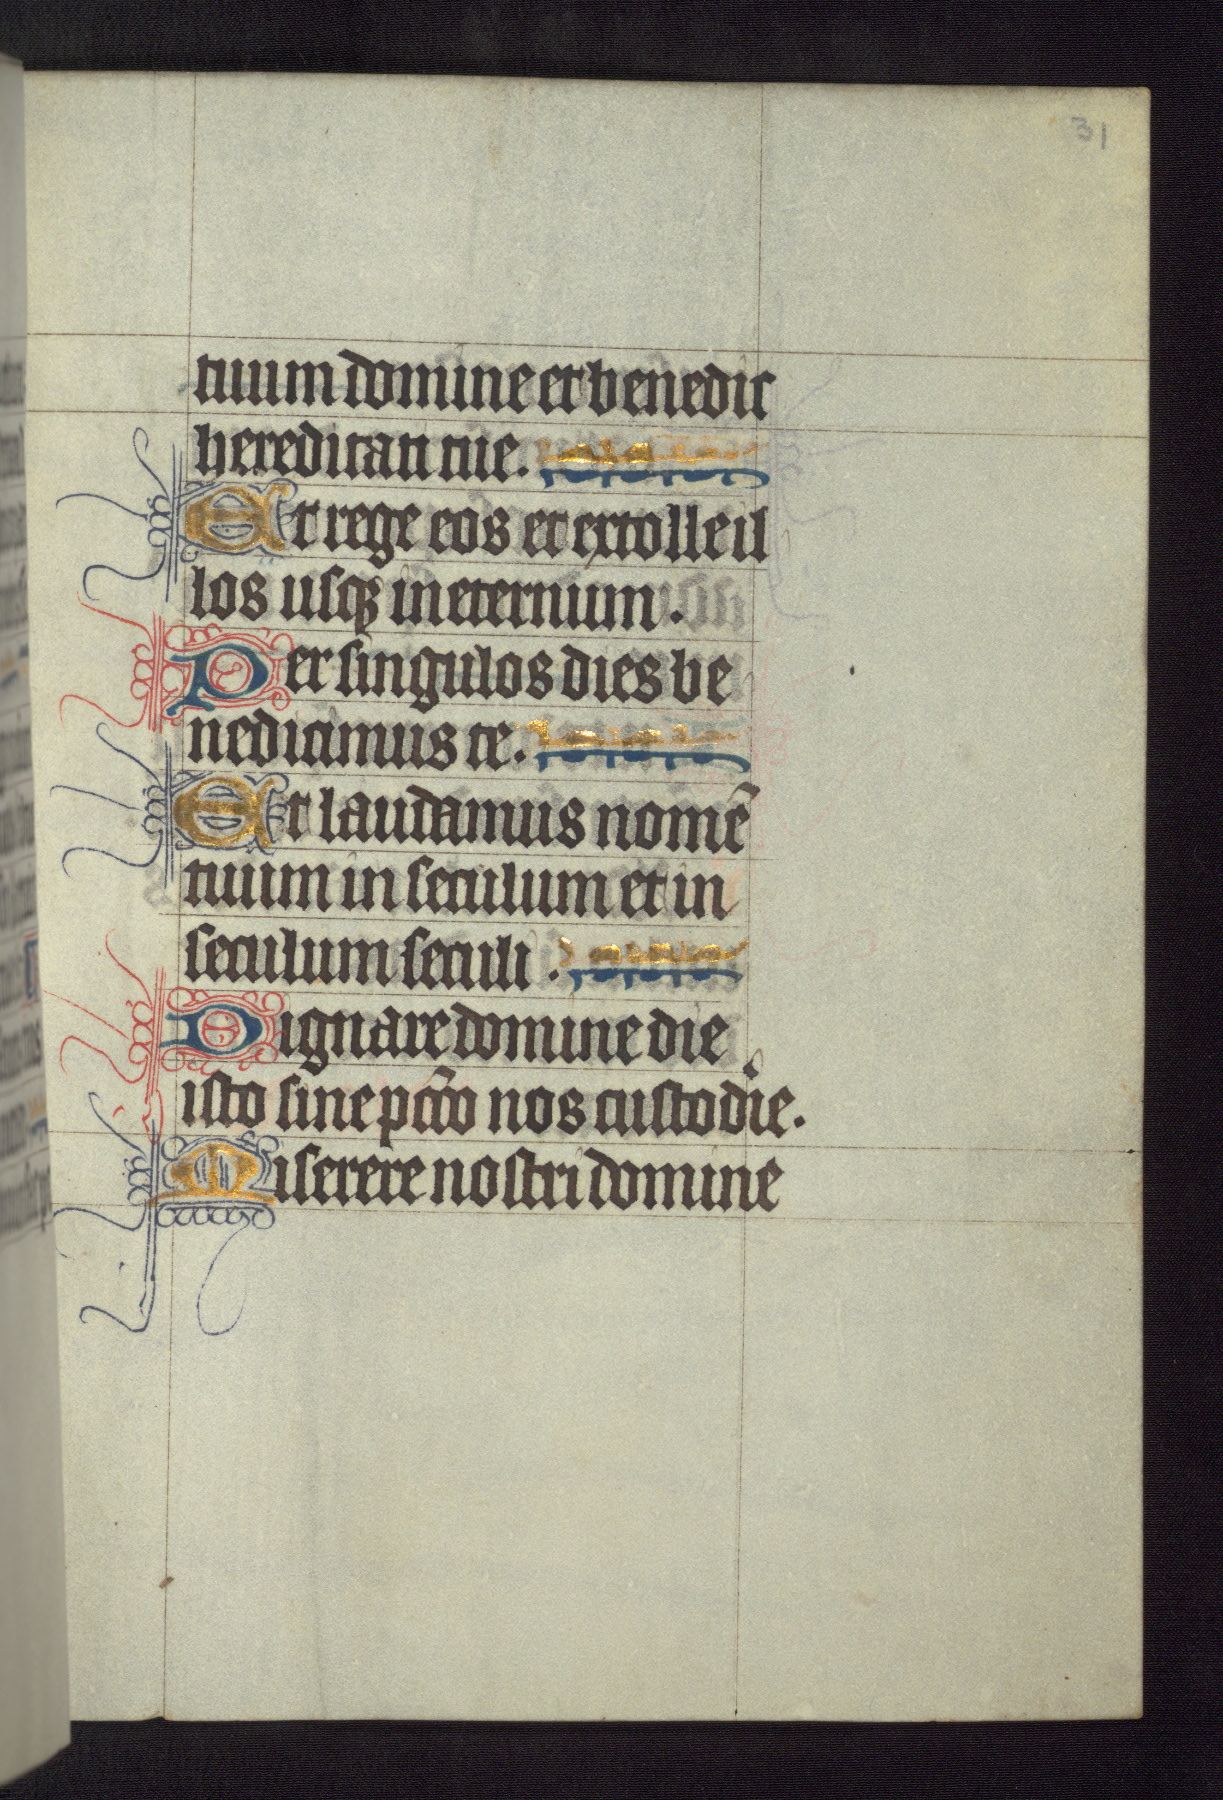 31
tuum domine et benedic
hereditati tue.
Et rege eos et extolle il
los usq̄ in eternum.
Per singulos dies be
nedicimus te.
Et laudamus nomē
tuum in seculum et in
seculum seculi.
Dignare domine die
isto sine pc̄co nos custodie.
Miserere nostri domine